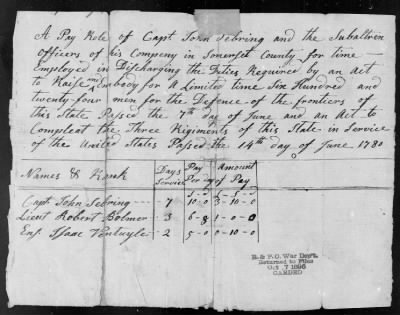 A Pay Role of Capt John Sebring and the Subaltren
officers of his Company in Somerset County for time
Employed in Discharging the Duties Required by an Act
to Raise and Embody for A Limited time Six Hundred and
twenty-four men for the Defence of the frontiers of
this State Passed the 7th day of June and an Act to
Compleat the Three Rigiments of this State in Service
of the United States Passed the 14th day of June 1780
Names & Rank Days Service Pay Per day Amount of Pay
Capt John Sebring - 7 10-0 3-10-0
Lieut Robert Bolmer - 3 6-8 1-0-0
Ens. Isaac - 2 5-0 0-10-0
R. & P. O. War Dep't.
Returned to Files
Oct 7 1896
CARDED